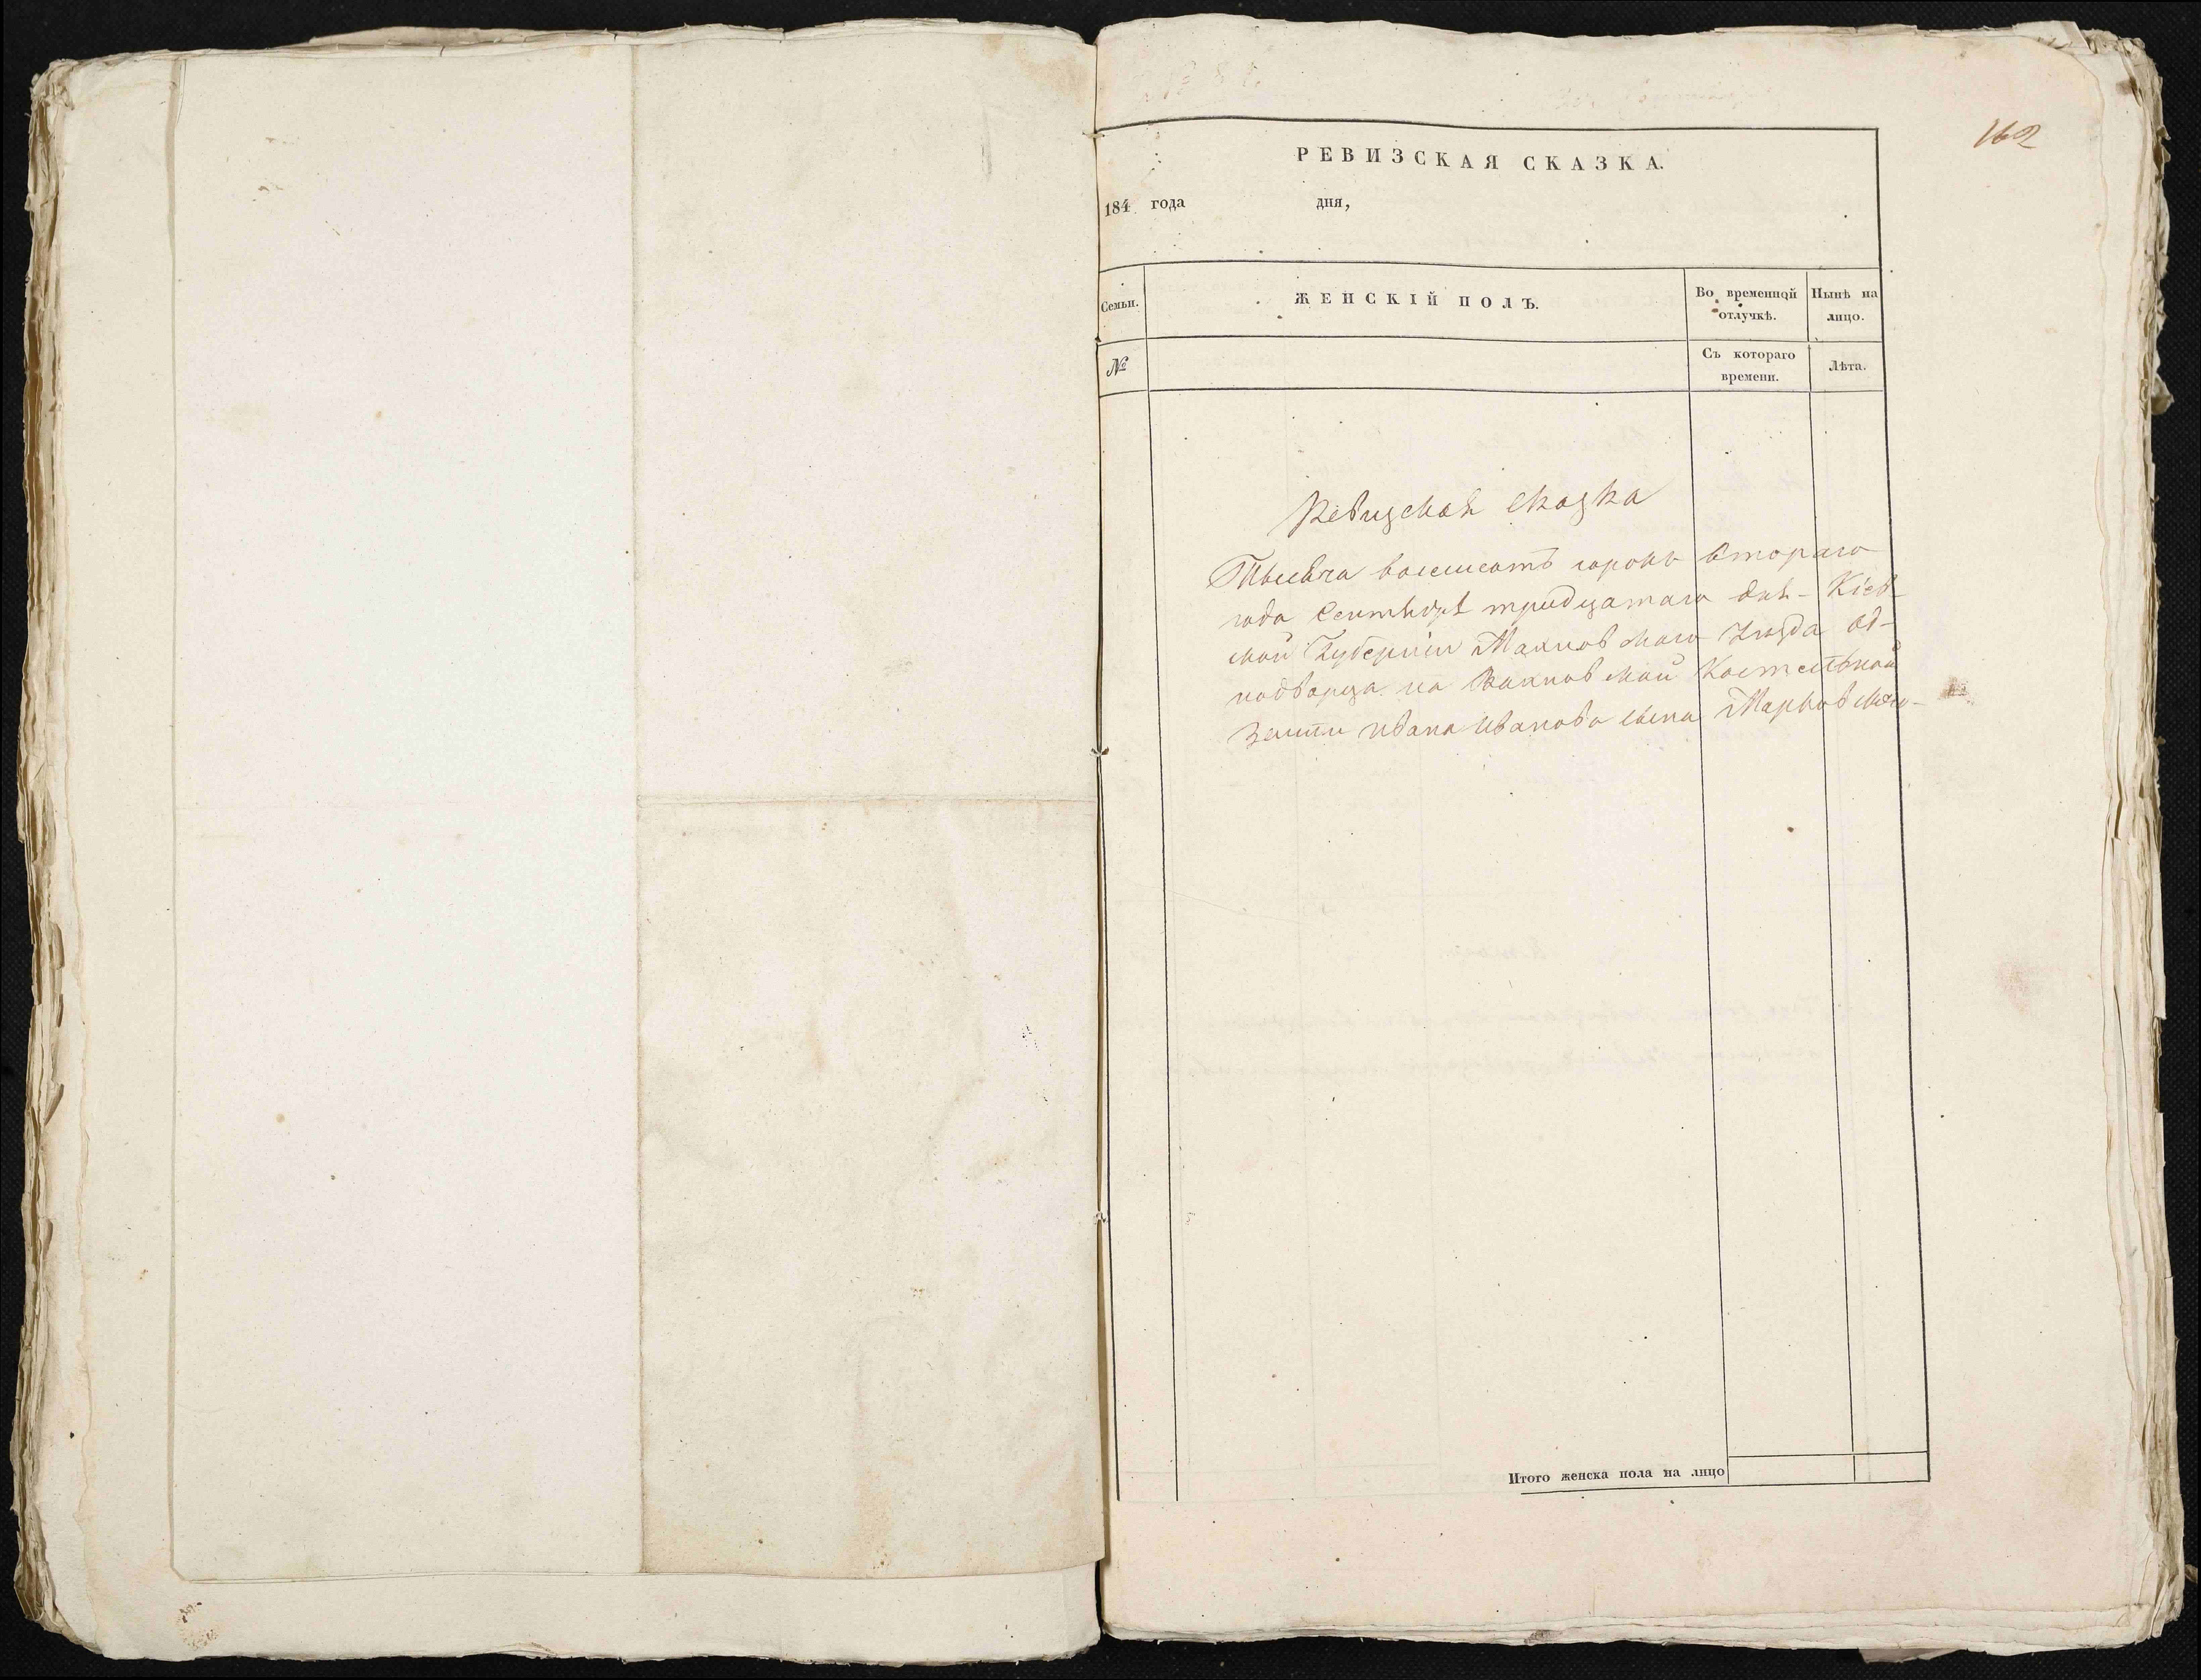 162
РЕВИЗСКАЯ СКАЗКА.
184 года дня,
Семьи. ЖЕНСКІЙ ПОЛЪ. Во временной отлучкѣ. Нынѣ на лицо.
№ Съ котораго времени. Лѣта.
Ревизская сказка
Тысяча восемсотъ сорокъ втораго
года Сентября тридцатаго дня - Кіев-
ской Губерніи Махновскаго уѣзда од-
нодворца на Махновской Костельной
Земли Ивана Иванова сына Марковскаго -
Итого женска пола на лицо